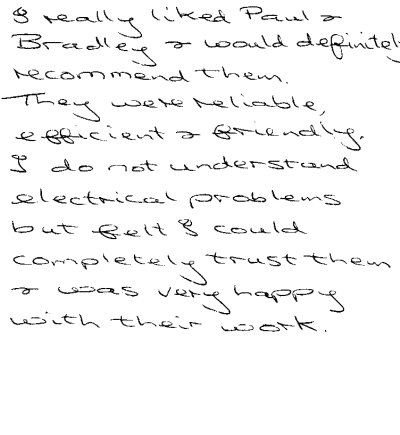 I really liked Paul &
Bradley & would definitely
recommend them.
They were reliable,
efficient & friendly.
I do not understand
electrical problems
but felt I could
completely trust them
& was very happy
with their work.